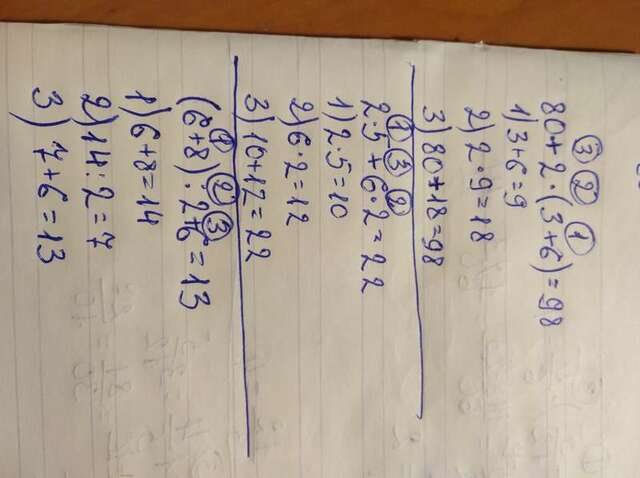 ③ ② ①
80+2·(3+6)=98
1) 3+6=9
2) 2·9=18
3) 80+18=98
① ③ ②
2·5+6·2=22
1) 2·5=10
2) 6·2=12
3) 10+12=22
① ② ③
(6+8):2+6=13
1) 6+8=14
2) 14:2=7
3) 7+6=13